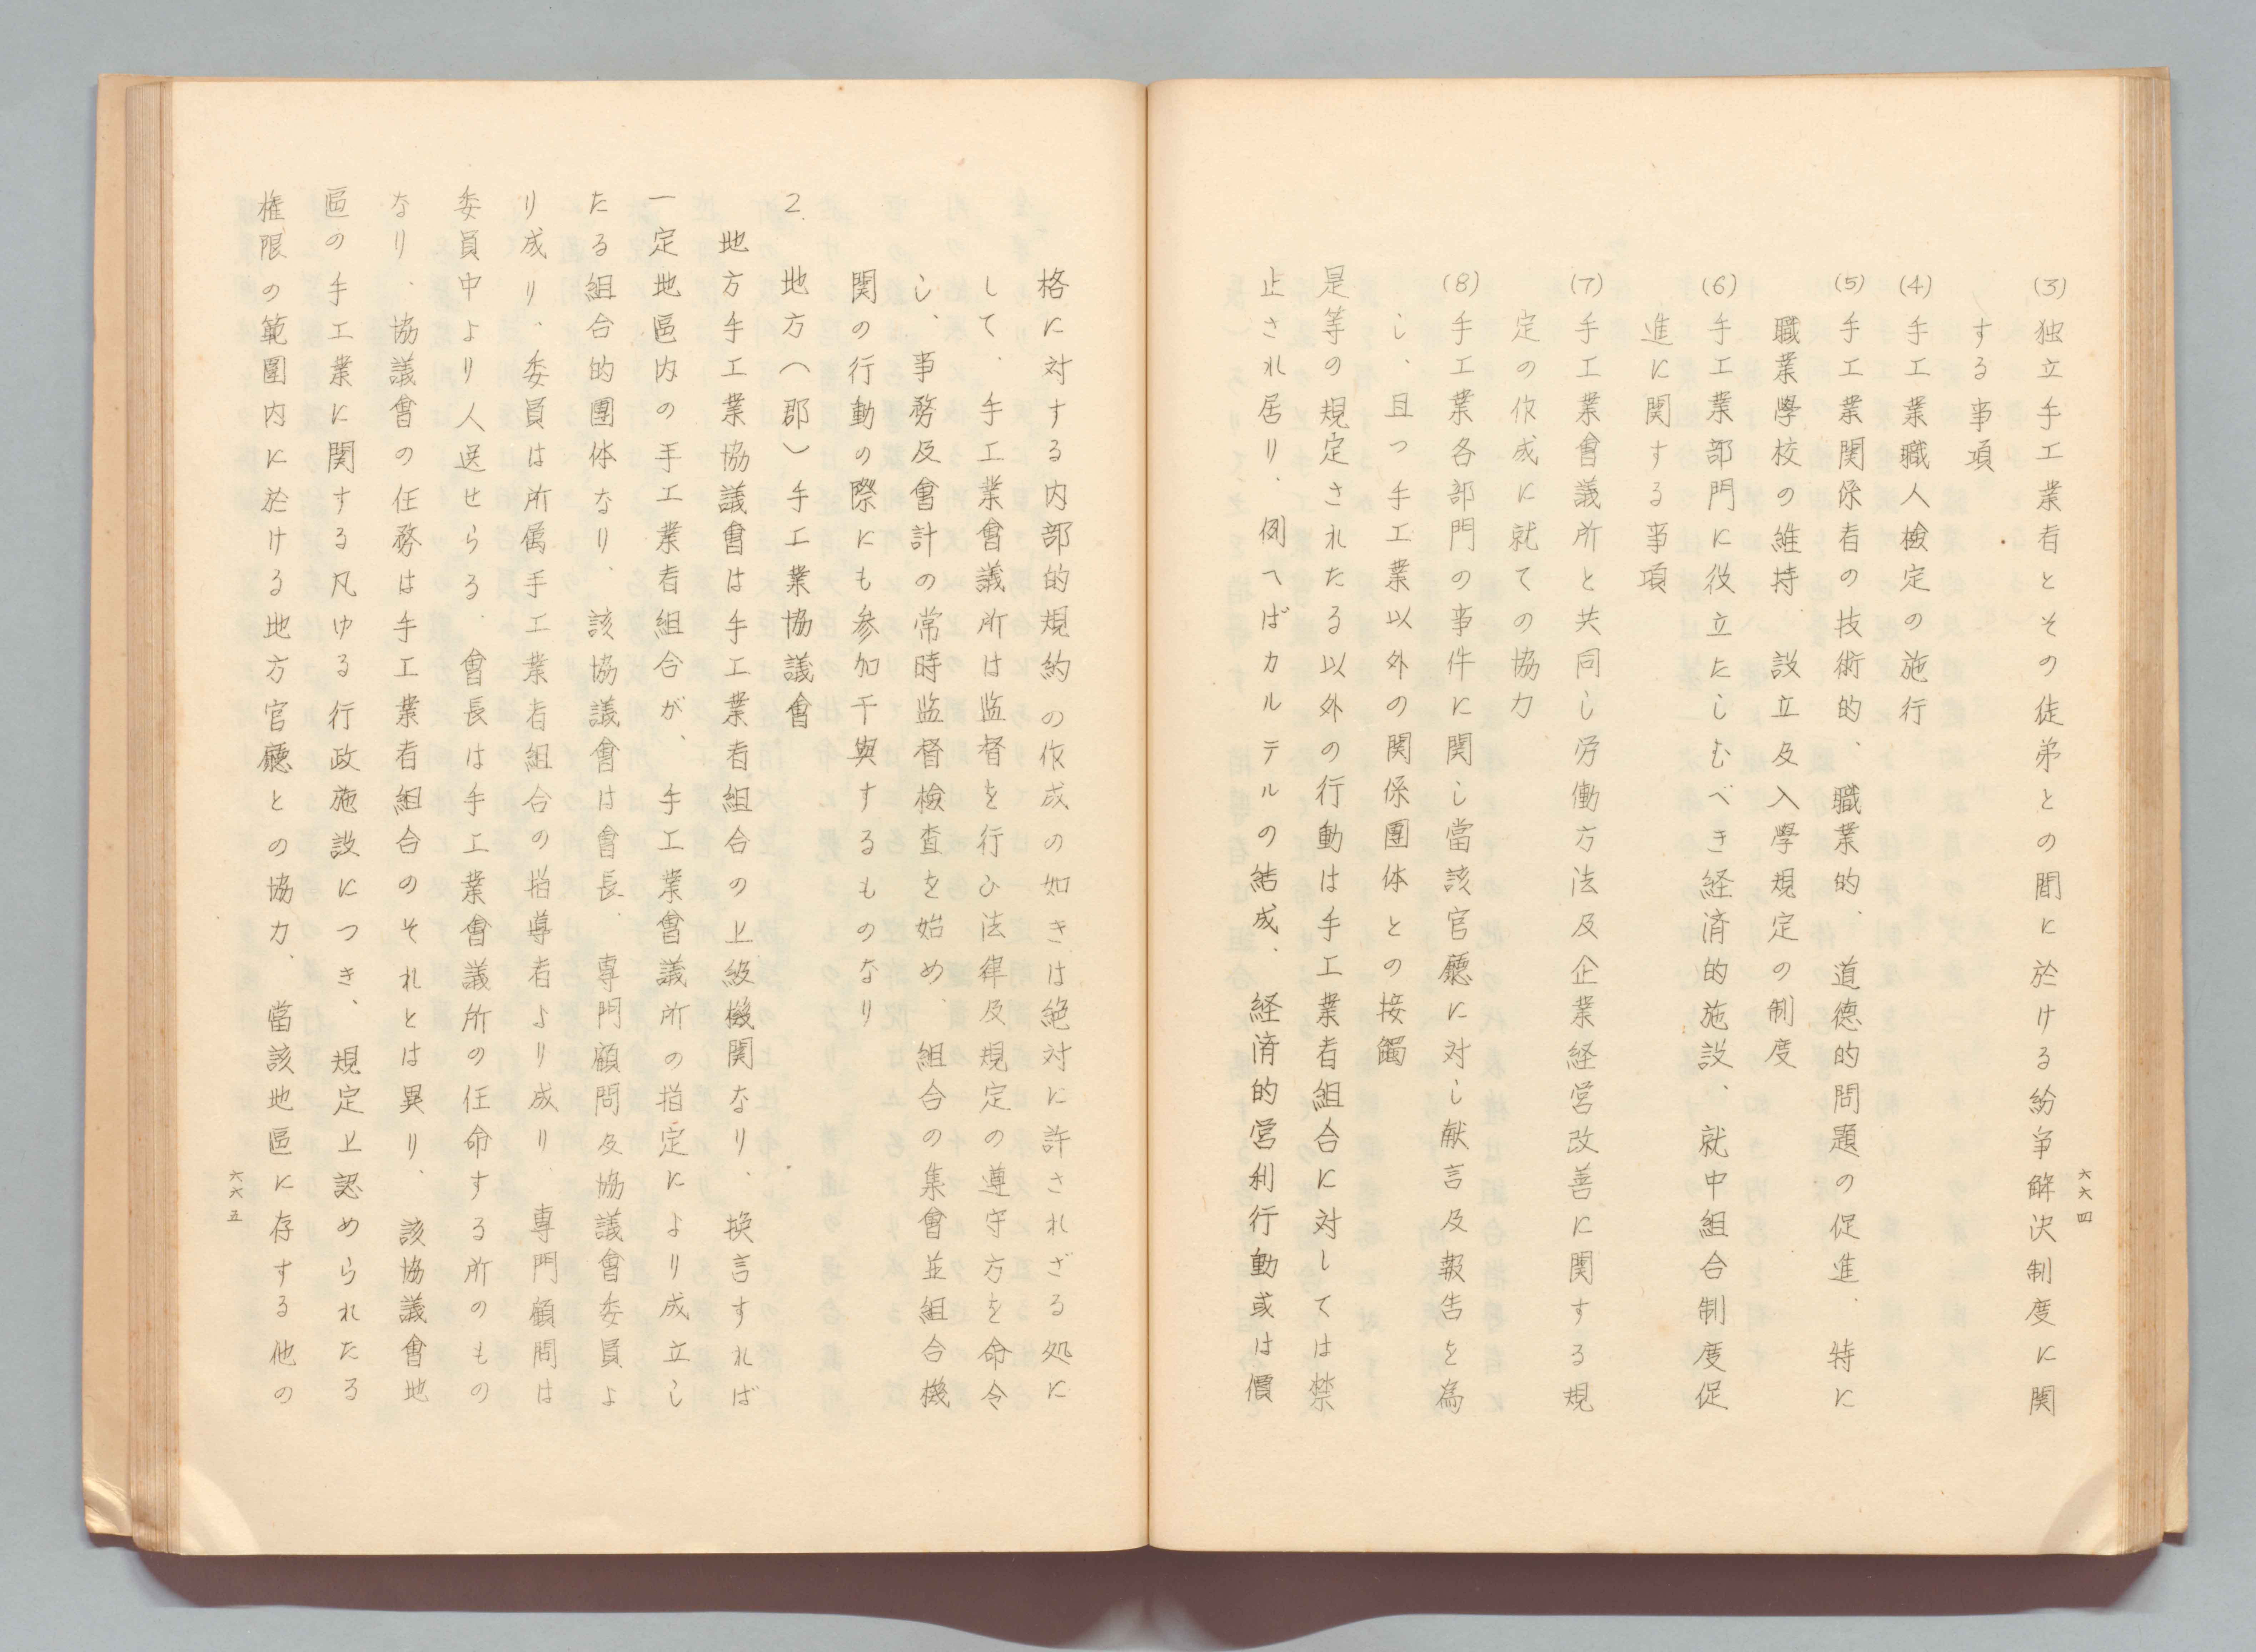 六六四
(3) 独立手工業者とその徒弟との間に於ける紛争解決制度に関
する事項
(4) 手工業職人檢定の施行
(5) 手工業関係者の技術的、職業的、道徳的問題の促進、特に
職業學校の維持　設立及入學規定の制度
(6) 手工業部門に役立たしむべき経済的施設、就中組合制度促
進に関する事項
(7) 手工業會議所と共同し労働方法及企業経営改善に関する規
定の作成に就ての協力
(8) 手工業各部門の事件に関し當該官廳に対し献言及報告を為
し、且つ手工業以外の関係團体との接觸
是等の規定されたる以外の行動は手工業者組合に対しては禁
止され居り、例へばカルテルの結成、経済的営利行動或は價
格に対する内部的規約の作成の如きは絶対に許されざる処に
して、手工業會議所は監督を行ひ法律及規定の遵守方を命令
し、事務及會計の常時監督檢査を始め、組合の集會並組合機
関の行動の際にも参加干與するものなり
2. 地方（郡）手工業協議會
地方手工業協議會は手工業者組合の上級機関なり、換言すれば
一定地區内の手工業者組合が、手工業會議所の指定により成立し
たる組合的團体なり、該協議會は會長、専門顧問及協議會委員よ
り成り、委員は所属手工業者組合の指導者より成り、専門顧問は
委員中より人送せらる、會長は手工業會議所の任命する所のもの
なり、協議會の任務は手工業者組合のそれとは異り、該協議會地
區の手工業に関する凡ゆる行政施設につき、規定上認められたる
権限の範圍内に於ける地方官廳との協力、當該地區に存する他の
六六五